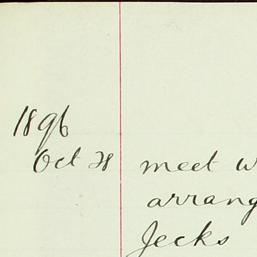 1896
Oct 28 meet w
arrang
Jecks